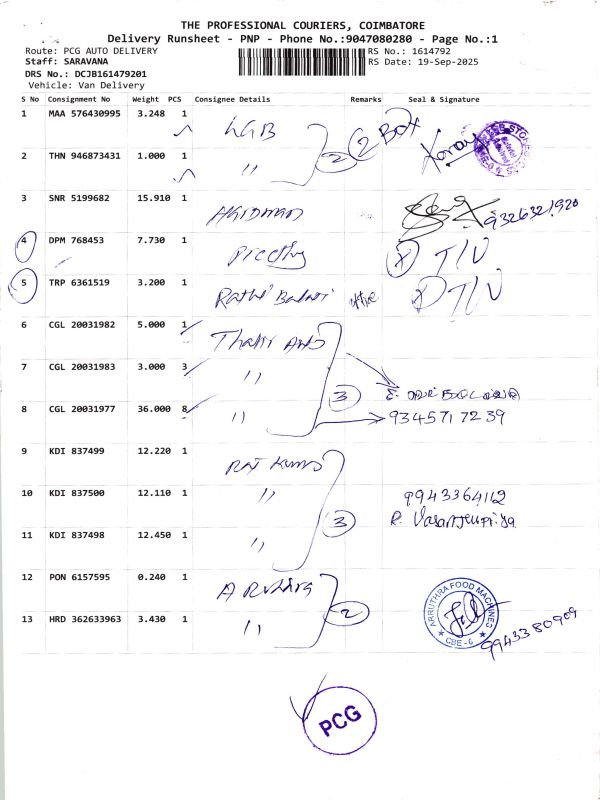 THE PROFESSIONAL COURIERS, COIMBATORE
Delivery Runsheet - PNP - Phone No.:9047080280 - Page No.:1
Route: PCG AUTO DELIVERY RS No.: 1614792
Staff: SARAVANA RS Date: 19-Sep-2025
DRS No.: DCJB161479201
Vehicle: Van Delivery
S No Consignment No Weight PCS Consignee Details Remarks Seal & Signature
1 MAA 576430995 3.248 1 LGB 2 Box
2 THN 946873431 1.000 1 " 2
3 SNR 5199682 15.910 1 9326321920
4 DPM 768453 7.730 1 T/V
5 TRP 6361519 3.200 1 Rathi office T/V
6 CGL 20031982 5.000 1
7 CGL 20031983 3.000 3 "
8 CGL 20031977 36.000 8 " 3 9345717239
9 KDI 837499 12.220 1 RAJ
10 KDI 837500 12.110 1 " 9943364112
11 KDI 837498 12.450 1 " 3 R.
12 PON 6157595 0.240 1
13 HRD 362633963 3.430 1 " 2 ARRUTHRA FOOD MACHINES CBE-6 9943380909
PCG